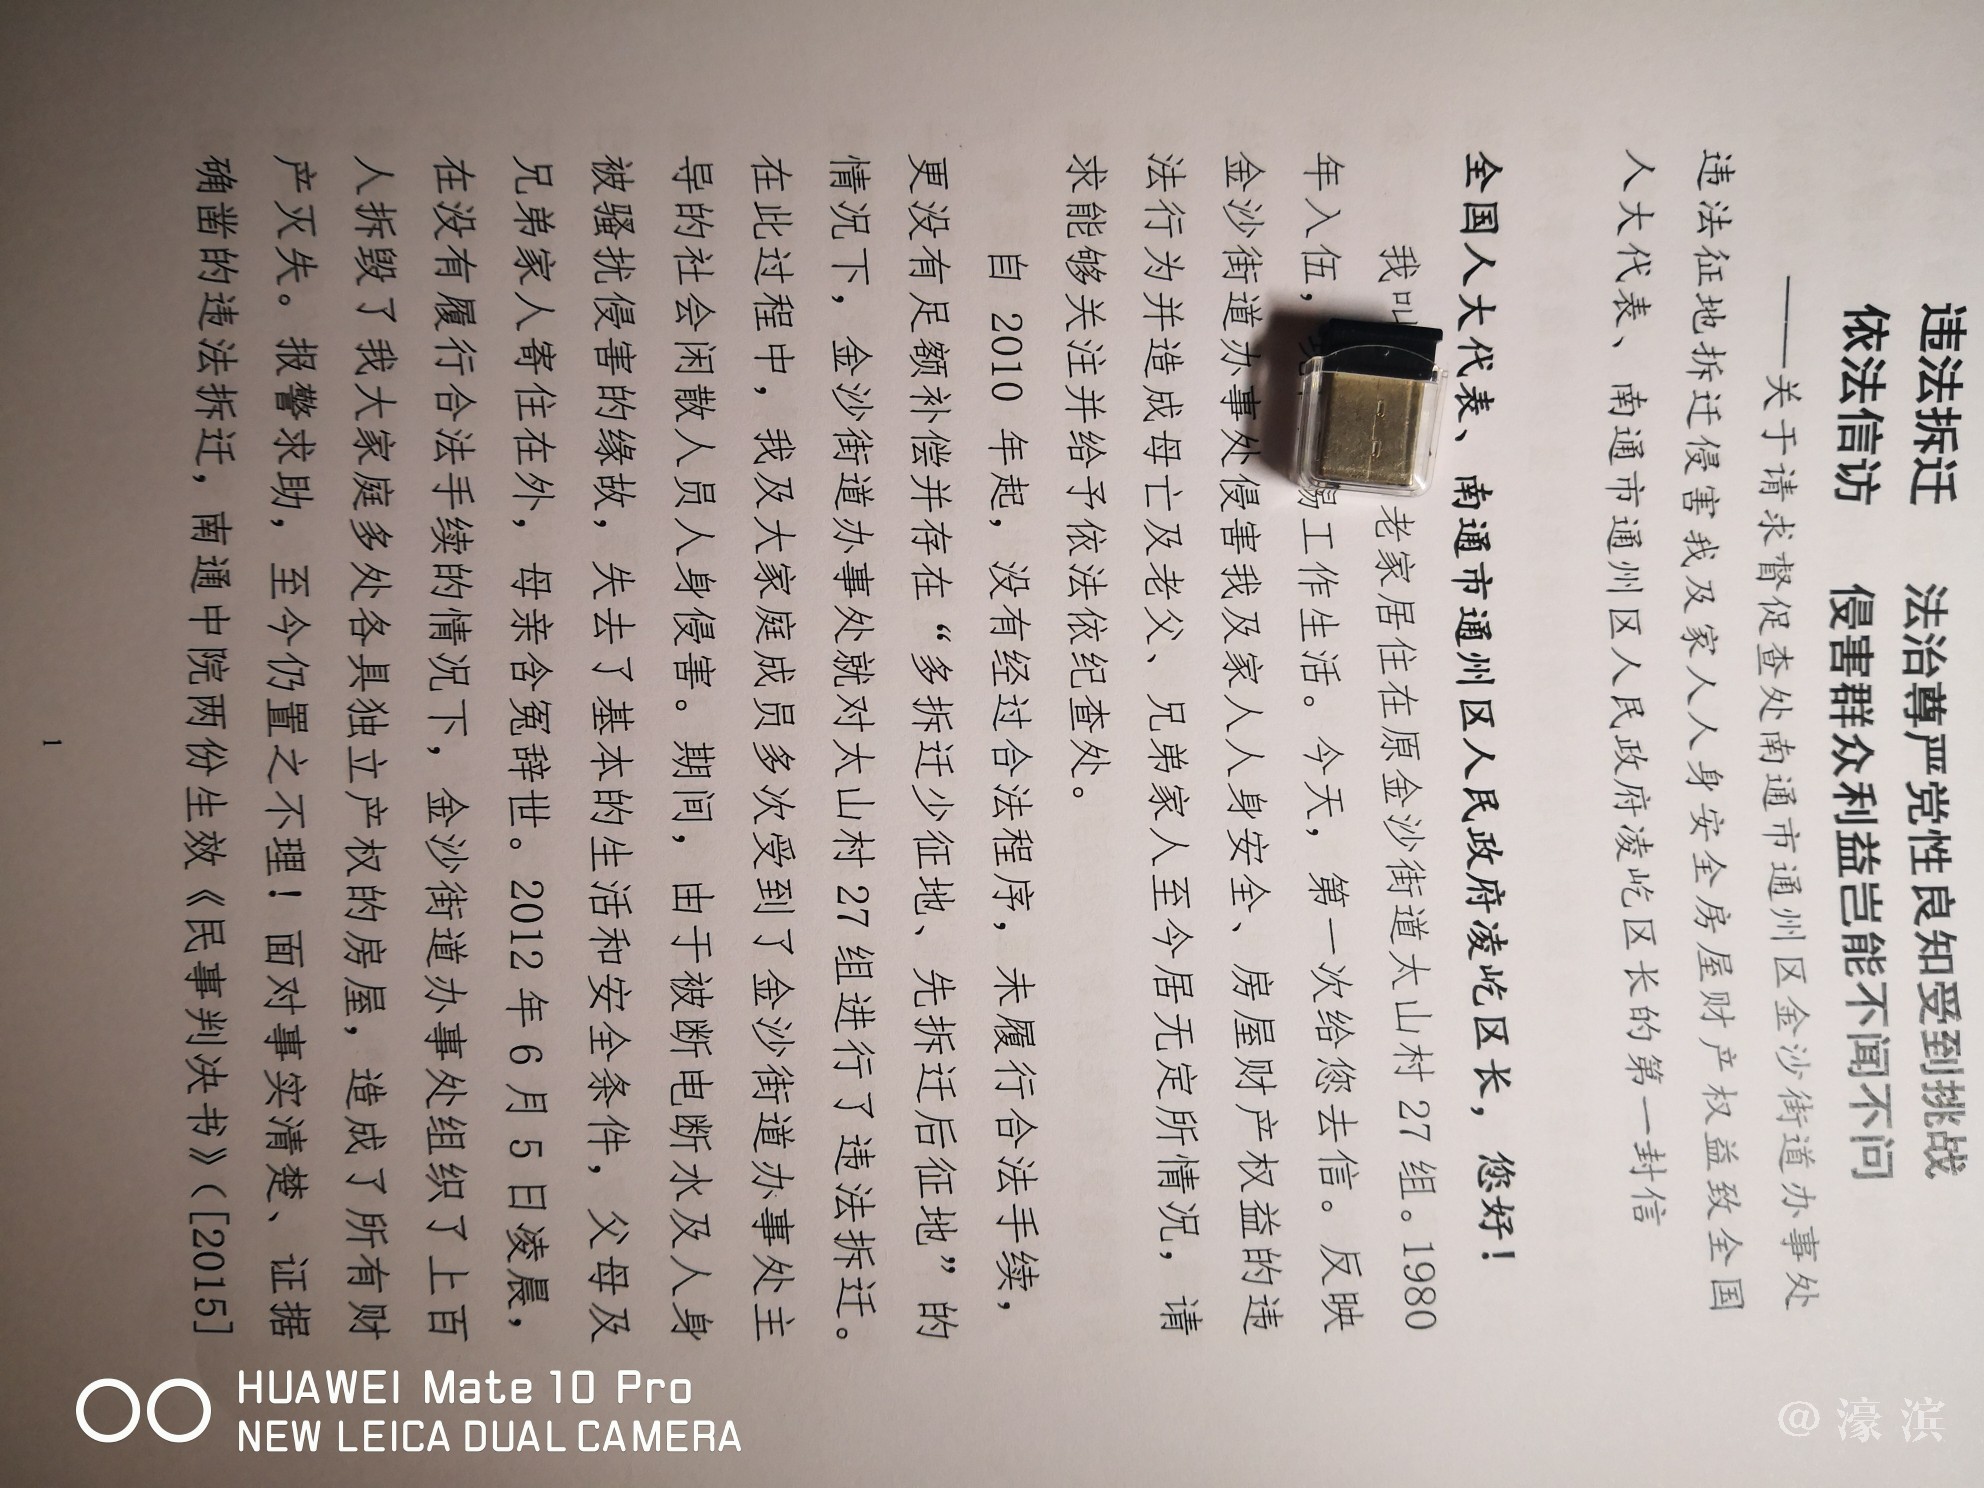 违法拆迁 法治尊严党性良知受到挑战
依法信访 侵害群众利益岂能不闻不问
——关于请求督促查处南通市通州区金沙街道办事处
违法征地拆迁侵害我及家人人身安全房屋财产权益致全国
人大代表、南通市通州区人民政府凌屹区长的第一封信
全国人大代表、南通市通州区人民政府凌屹区长，您好！
我叫 老家居住在原金沙街道太山村 27 组。1980
年入伍， 锡工作生活。今天，第一次给您去信。反映
金沙街道办事处侵害我及家人人身安全、房屋财产权益的违
法行为并造成母亡及老父、兄弟家人至今居无定所情况，请
求能够关注并给予依法依纪查处。
自 2010 年起，没有经过合法程序，未履行合法手续，
更没有足额补偿并存在“多拆迁少征地、先拆迁后征地”的
情况下，金沙街道办事处就对太山村 27 组进行了违法拆迁。
在此过程中，我及大家庭成员多次受到了金沙街道办事处主
导的社会闲散人员人身侵害。期间，由于被断电断水及人身
被骚扰侵害的缘故，失去了基本的生活和安全条件，父母及
兄弟家人寄住在外，母亲含冤辞世。2012 年 6 月 5 日凌晨，
在没有履行合法手续的情况下，金沙街道办事处组织了上百
人拆毁了我大家庭多处各具独立产权的房屋，造成了所有财
产灭失。报警求助，至今仍置之不理！面对事实清楚、证据
确凿的违法拆迁，南通中院两份生效《民事判决书》（[2015]
1
HUAWEI Mate 10 Pro
NEW LEICA DUAL CAMERA
@濠滨